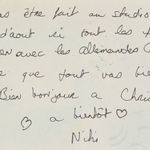 as être fait au studio
d'août si tout les f
en avec les allemandes C
e que tout vas bie
Bien bonjour a Chri
a bientôt
Niki